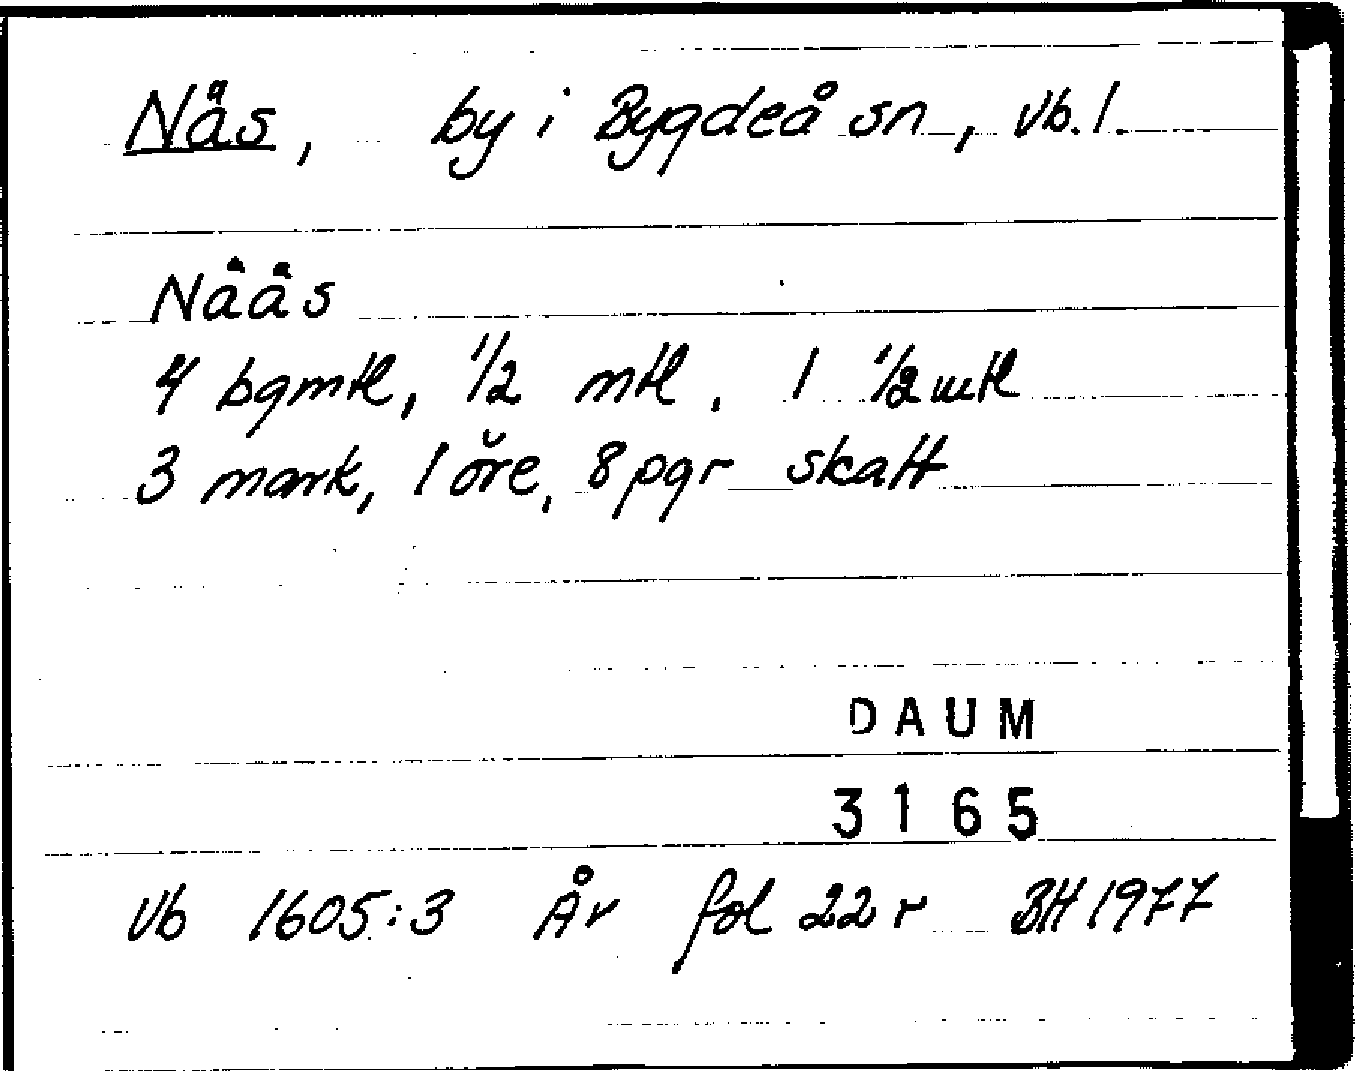 Nås, by i Bygdeå sn, Vb. l.
Nåås
4 bgmtl, 1/2 mtl, 1 1/2 mtl
3 mark, 1 öre, 8 pgr skatt
DAUM
3165
Vb 1605:3 År fol 22 r BH 1977